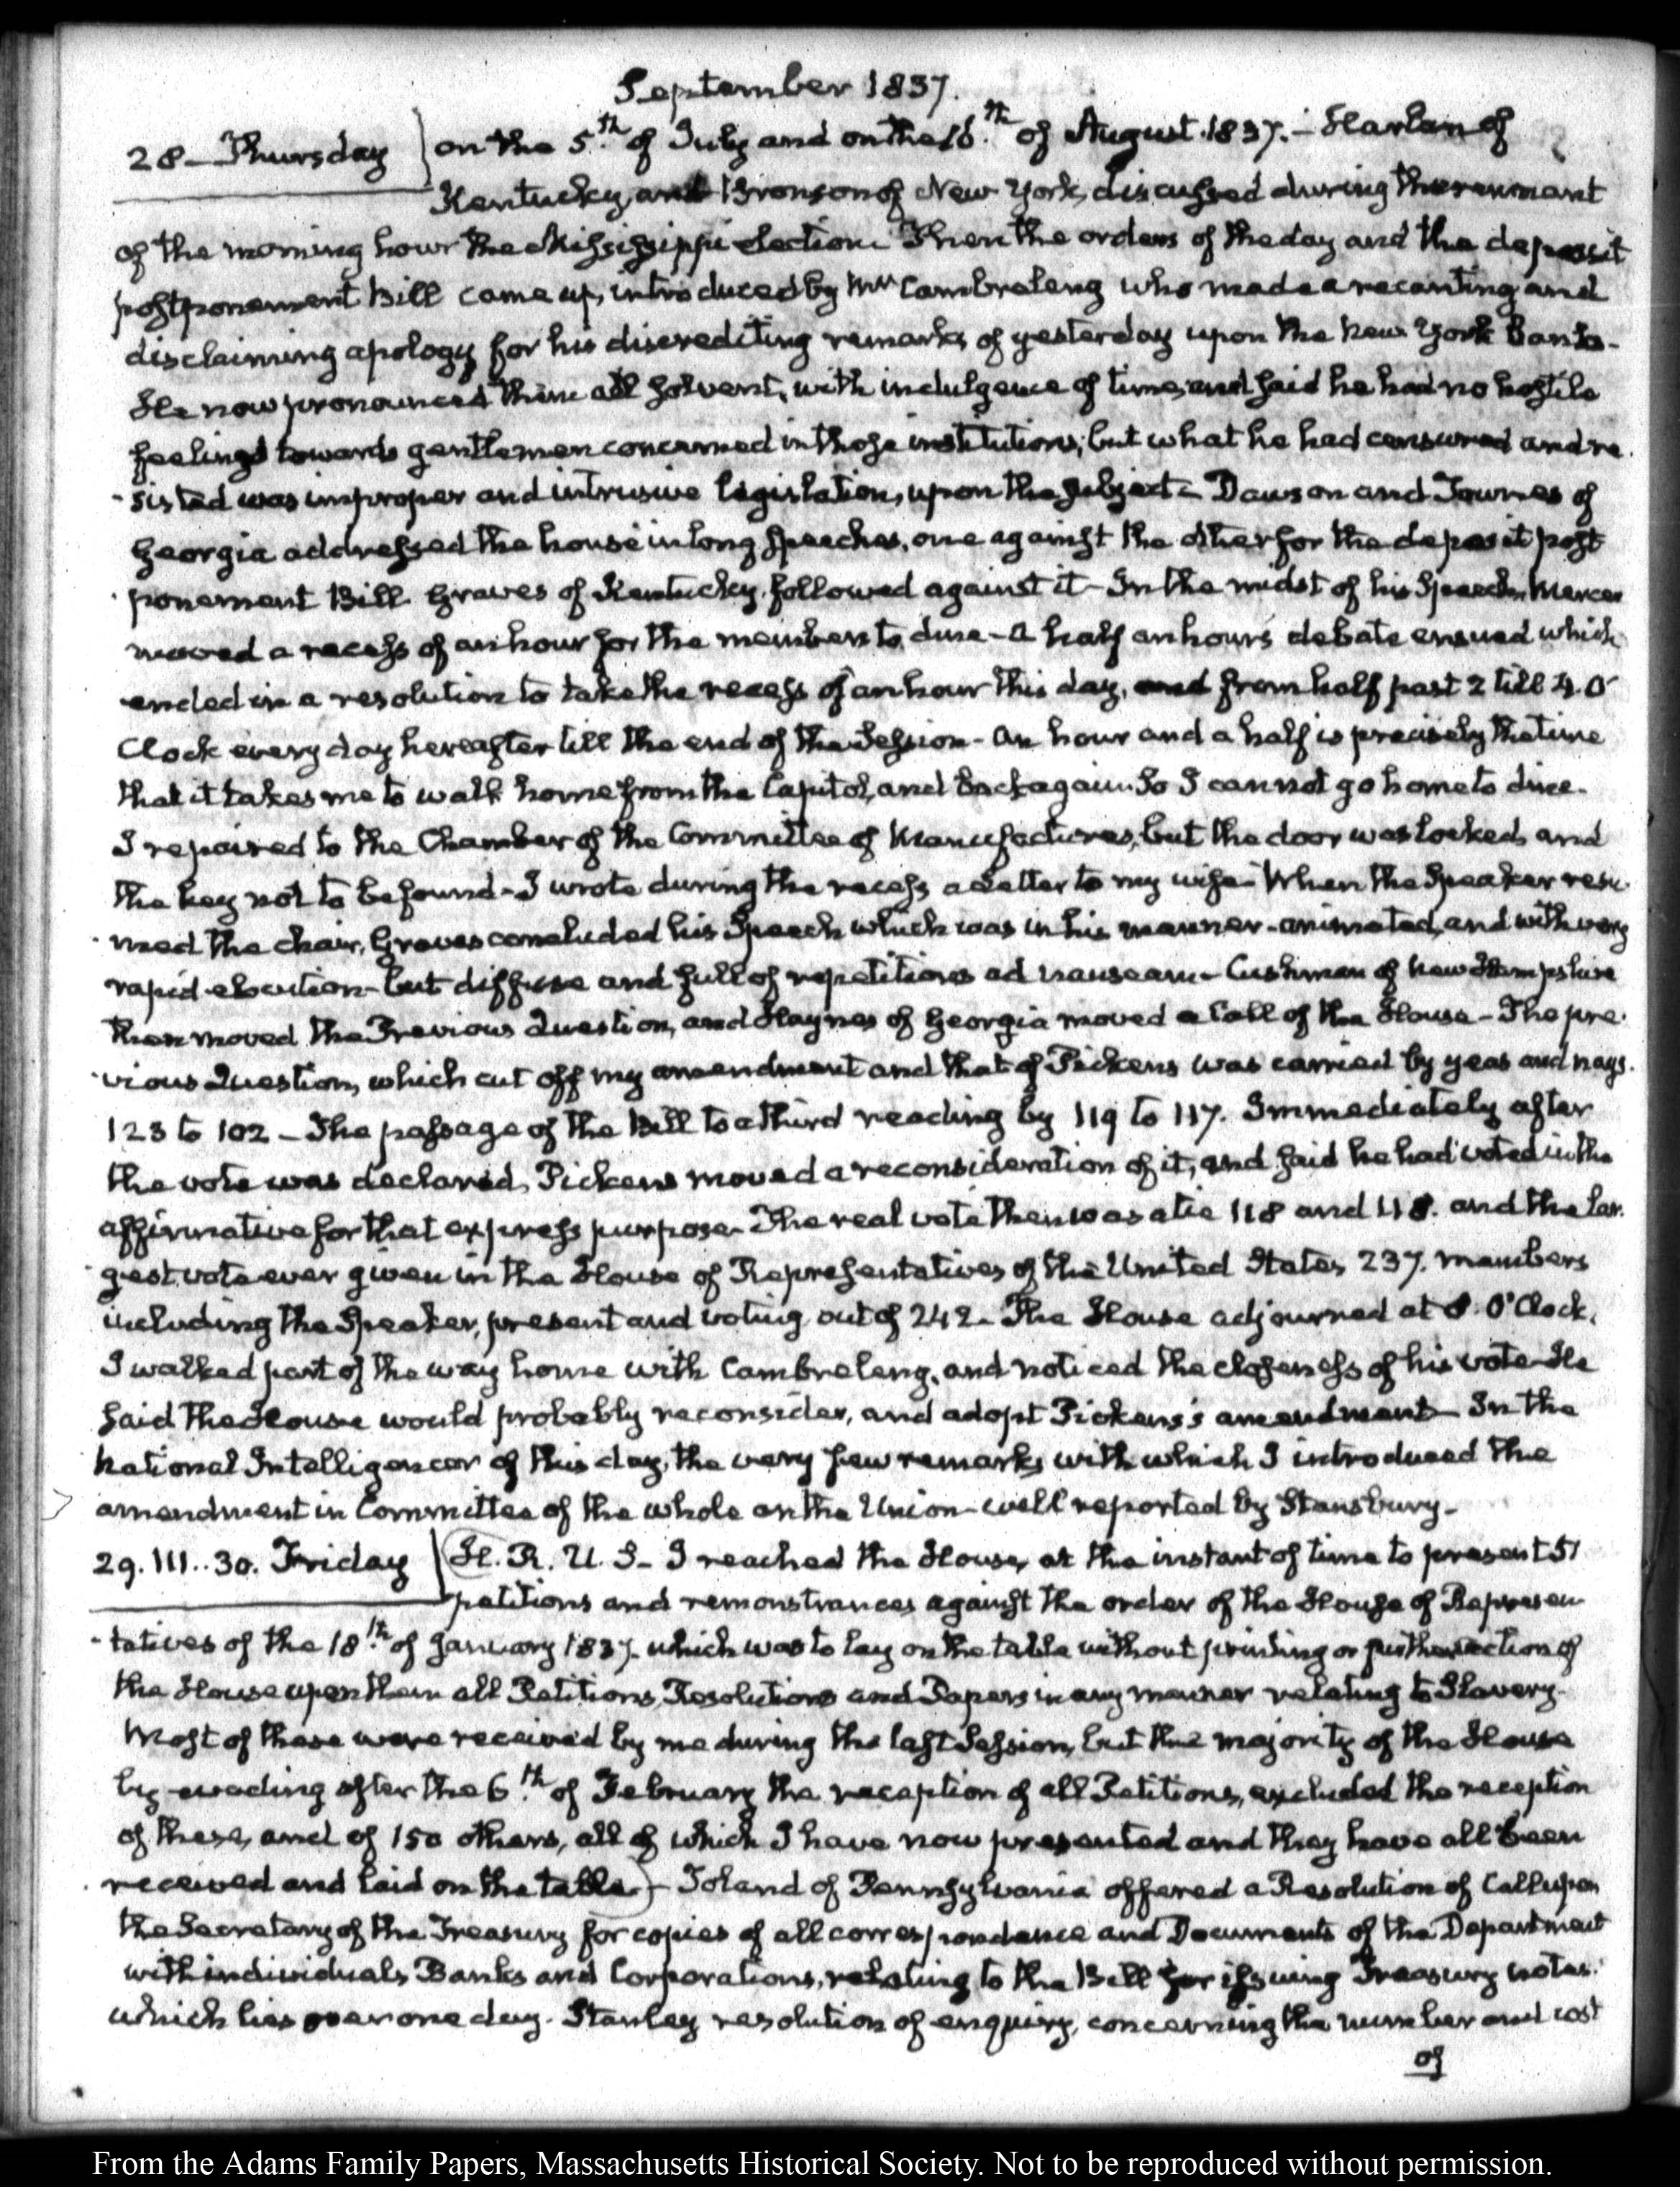 September 1837.
28 — Thursday } on the 5.th of July and on the 16.th of August 1837. — Harlan of
Kentucky, and Bronson of New York, discussed during the remnant
of the morning hour the Mississippi election. Then the orders of the day and the deposit
postponement Bill came up, introduced by Mr Cambreleng who made a recanting and
disclaiming apology for his discrediting remarks of yesterday upon the New York Banks-
He now pronounced them all solvent, with indulgence of time, and said he had no hostile
feelings towards gentlemen concerned in those institutions; but what he had censured and re
-sisted was improper and intrusive legislation, upon the subject - Dawson and Townes of
Georgia addressed the house in long speeches, one against the other for the deposit post
ponement Bill. Graves of Kentucky followed against it - In the midst of his Speech, Mercer
moved a recess of an hour for the members to dine - A half an hours debate ensued which
ended in a resolution to take the recess of an hour this day, and from half past 2 till 4. O'
Clock every day hereafter till the end of the Session - An hour and a half is precisely the time
that it takes me to walk home from the Capitol, and back again. So I cannot go home to dine.
I repaired to the Chamber of the Committee of Manufactures, but the door was locked, and
the key not to be found - I wrote during the recess a Letter to my wife - When the Speaker resu
-med the chair, Graves concluded his Speech which was in his manner - animated, and with very
rapid elocution - but diffuse and full of repetitions ad nauseam - Cushman of New Hampshire
then moved the Previous Question, and Haynes of Georgia moved a Call of the House - The pre
-vious Question, which cut off my amendment and that of Pickens was carried by yeas and nays.
123 to 102 - The passage of the Bill to a third reading by 119 to 117. Immediately after
the vote was declared, Pickens moved a reconsideration of it, and said he had voted in the
affirmative for that express purpose - The real vote then was a tie 118 and 118. and the lar
-gest vote ever given in the House of Representatives of the United States 237. members
including the Speaker, present and voting out of 242 - The House adjourned at 8. O'Clock,
I walked part of the way home with Cambreleng, and noticed the closeness of his vote - He
said the House would probably reconsider, and adopt Pickens's amendment - In the
National Intelligencer of this day, the very few remarks with which I introduced the
amendment in Committee of the whole on the Union - well reported by Stansbury -
29. III..30. Friday } H. R. U. S - I reached the House, at the instant of time to present 51
petitions and remonstrances against the order of the House of Represen
-tatives of the 18.th of January 1837. which was to lay on the table without printing or further action of
the House upon them all Petitions, Resolutions and Papers in any manner relating to Slavery -
Most of these were received by me during the last Session, but the majority of the House
by evading after the 6.th of February the reception of all Petitions, excluded the reception
of these, and of 150 others, all of which I have now presented and they have all been
received and laid on the table) - Toland of Pennsylvania offered a Resolution of Call upon
the Secretary of the Treasury for copies of all correspondence and Documents of the Department
with individuals, Banks and Corporations, relating to the Bill for issuing Treasury notes.
which lies over one day. Stanley resolution of enquiry, concerning the number and cost
of
From the Adams Family Papers, Massachusetts Historical Society. Not to be reproduced without permission.